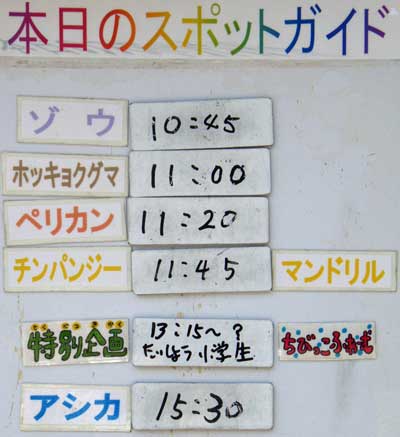 本日のスポットガイド
ゾウ 10:45
ホッキョクグマ 11:00
ペリカン 11:20
チンパンジー 11:45 マンドリル
とくべつきかく
特別企画 13:15〜? ちびっこふれモ
たいしょう小学生
アシカ 15:30